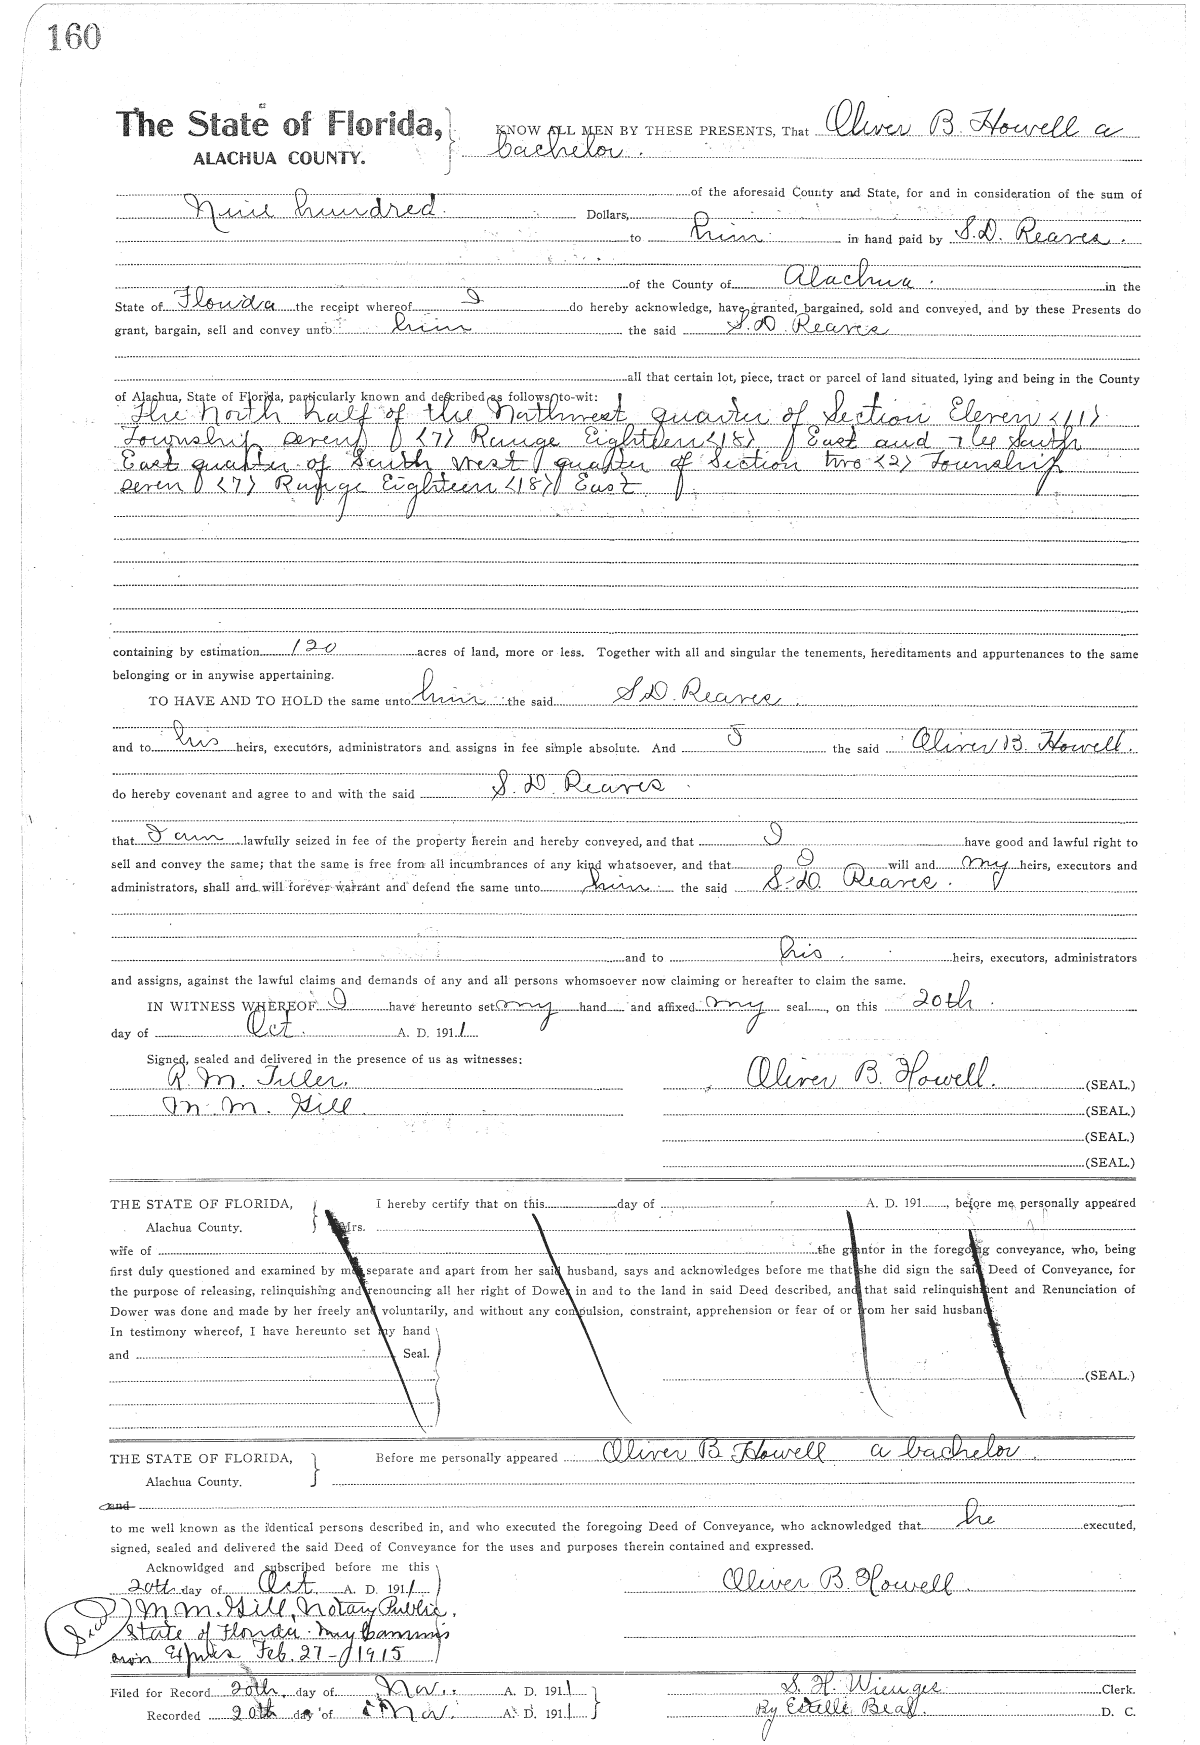 160
The State of Florida,
ALACHUA COUNTY.
KNOW ALL MEN BY THESE PRESENTS, That Oliver B. Howell a
bachelor.
of the aforesaid County and State, for and in consideration of the sum of
Nine hundred Dollars,
to him in hand paid by S.D. Reaves.
of the County of Alachua. in the
State of Florida the receipt whereof I do hereby acknowledge, have granted, bargained, sold and conveyed, and by these Presents do
grant, bargain, sell and convey unto him the said S.D. Reaves
all that certain lot, piece, tract or parcel of land situated, lying and being in the County
of Alachua, State of Florida, particularly known and described as follows, to-wit:
The North half of the Northwest quarter of Section Eleven (11)
Township seven (7) Range Eighteen (18) East and the South
East quarter of South west quarter of Section two (2) Township
seven (7) Range Eighteen (18) East
containing by estimation 120 acres of land, more or less. Together with all and singular the tenements, hereditaments and appurtenances to the same
belonging or in anywise appertaining.
TO HAVE AND TO HOLD the same unto him the said S.D. Reaves.
and to his heirs, executors, administrators and assigns in fee simple absolute. And I the said Oliver B. Howell.
do hereby covenant and agree to and with the said S. D. Reaves
that I am lawfully seized in fee of the property herein and hereby conveyed, and that I have good and lawful right to
sell and convey the same; that the same is free from all incumbrances of any kind whatsoever, and that I will and my heirs, executors and
administrators, shall and will forever warrant and defend the same unto him the said S.D. Reaves.
and to his heirs, executors, administrators
and assigns, against the lawful claims and demands of any and all persons whomsoever now claiming or hereafter to claim the same.
IN WITNESS WHEREOF I have hereunto set my hand and affixed my seal, on this 20th
day of Oct. A. D. 1911
Signed, sealed and delivered in the presence of us as witnesses:
R. M. Tiller.
M. M. Gill.
Oliver B. Howell. (SEAL.)
(SEAL.)
(SEAL.)
(SEAL.)
THE STATE OF FLORIDA,
Alachua County.
I hereby certify that on this day of A. D. 191 , before me personally appeared
Mrs.
wife of the grantor in the foregoing conveyance, who, being
first duly questioned and examined by me separate and apart from her said husband, says and acknowledges before me that she did sign the said Deed of Conveyance, for
the purpose of releasing, relinquishing and renouncing all her right of Dower in and to the land in said Deed described, and that said relinquishment and Renunciation of
Dower was done and made by her freely and voluntarily, and without any compulsion, constraint, apprehension or fear of or from her said husband.
In testimony whereof, I have hereunto set my hand
and Seal.
(SEAL.)
THE STATE OF FLORIDA,
Alachua County.
Before me personally appeared Oliver B Howell a bachelor.
and
to me well known as the identical persons described in, and who executed the foregoing Deed of Conveyance, who acknowledged that he executed,
signed, sealed and delivered the said Deed of Conveyance for the uses and purposes therein contained and expressed.
Acknowldged and subscribed before me this
20th day of Oct A. D. 1911
Oliver B. Howell.
(Seal) M M. Gill, Notary Public,
State of Florida. My Commis
sion Expires Feb. 27-1915
Filed for Record 20th, day of Nov. A. D. 1911
Recorded 20th day of Nov. A. D. 1911
S. H. Wienges Clerk.
By Estelle Beaf. D. C.